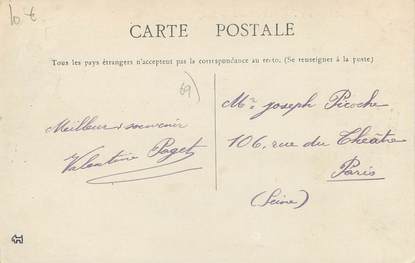 10 €
CARTE POSTALE
Tous les pays étrangers n'acceptent pas la correspondance au recto. (Se renseigner à la poste)
69)
Meilleur souvenir
Valentine Paget
Mr Joseph Picoche
106, rue du Théâtre
Paris
(Seine)